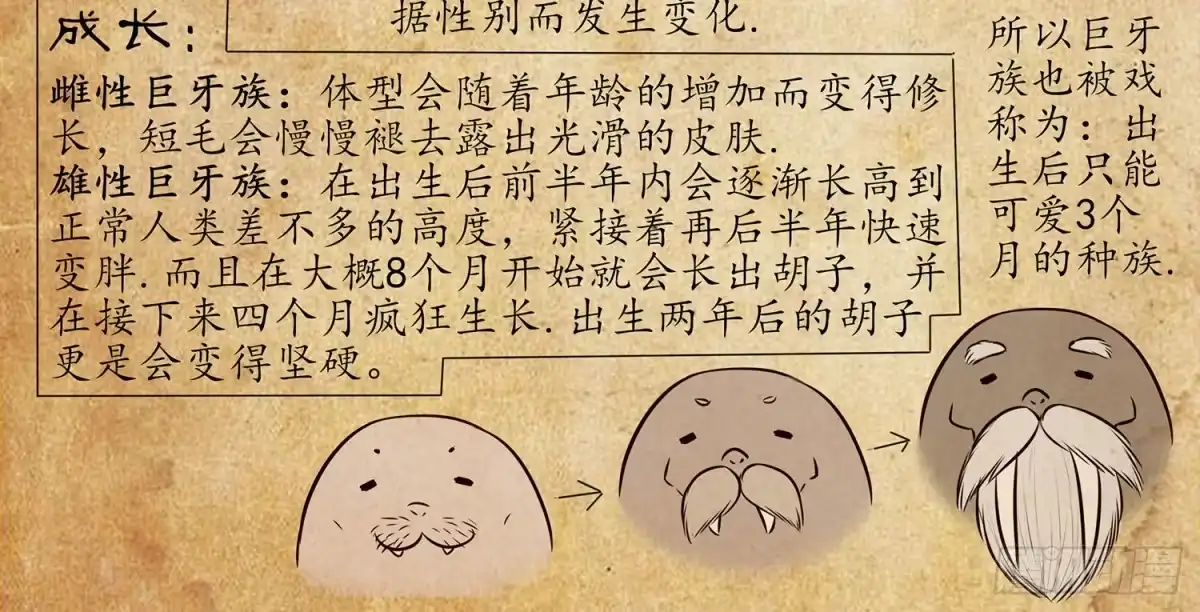 据性别而发生变化.
成长:
雌性巨牙族：体型会随着年龄的增加而变得修
长，短毛会慢慢褪去露出光滑的皮肤.
雄性巨牙族：在出生后前半年内会逐渐长高到
正常人类差不多的高度，紧接着再后半年快速
变胖.而且在大概8个月开始就会长出胡子，并
在接下来四个月疯狂生长.出生两年后的胡子
更是会变得坚硬。
所以巨牙
族也被戏
称为：出
生后只能
可爱3个
月的种族.